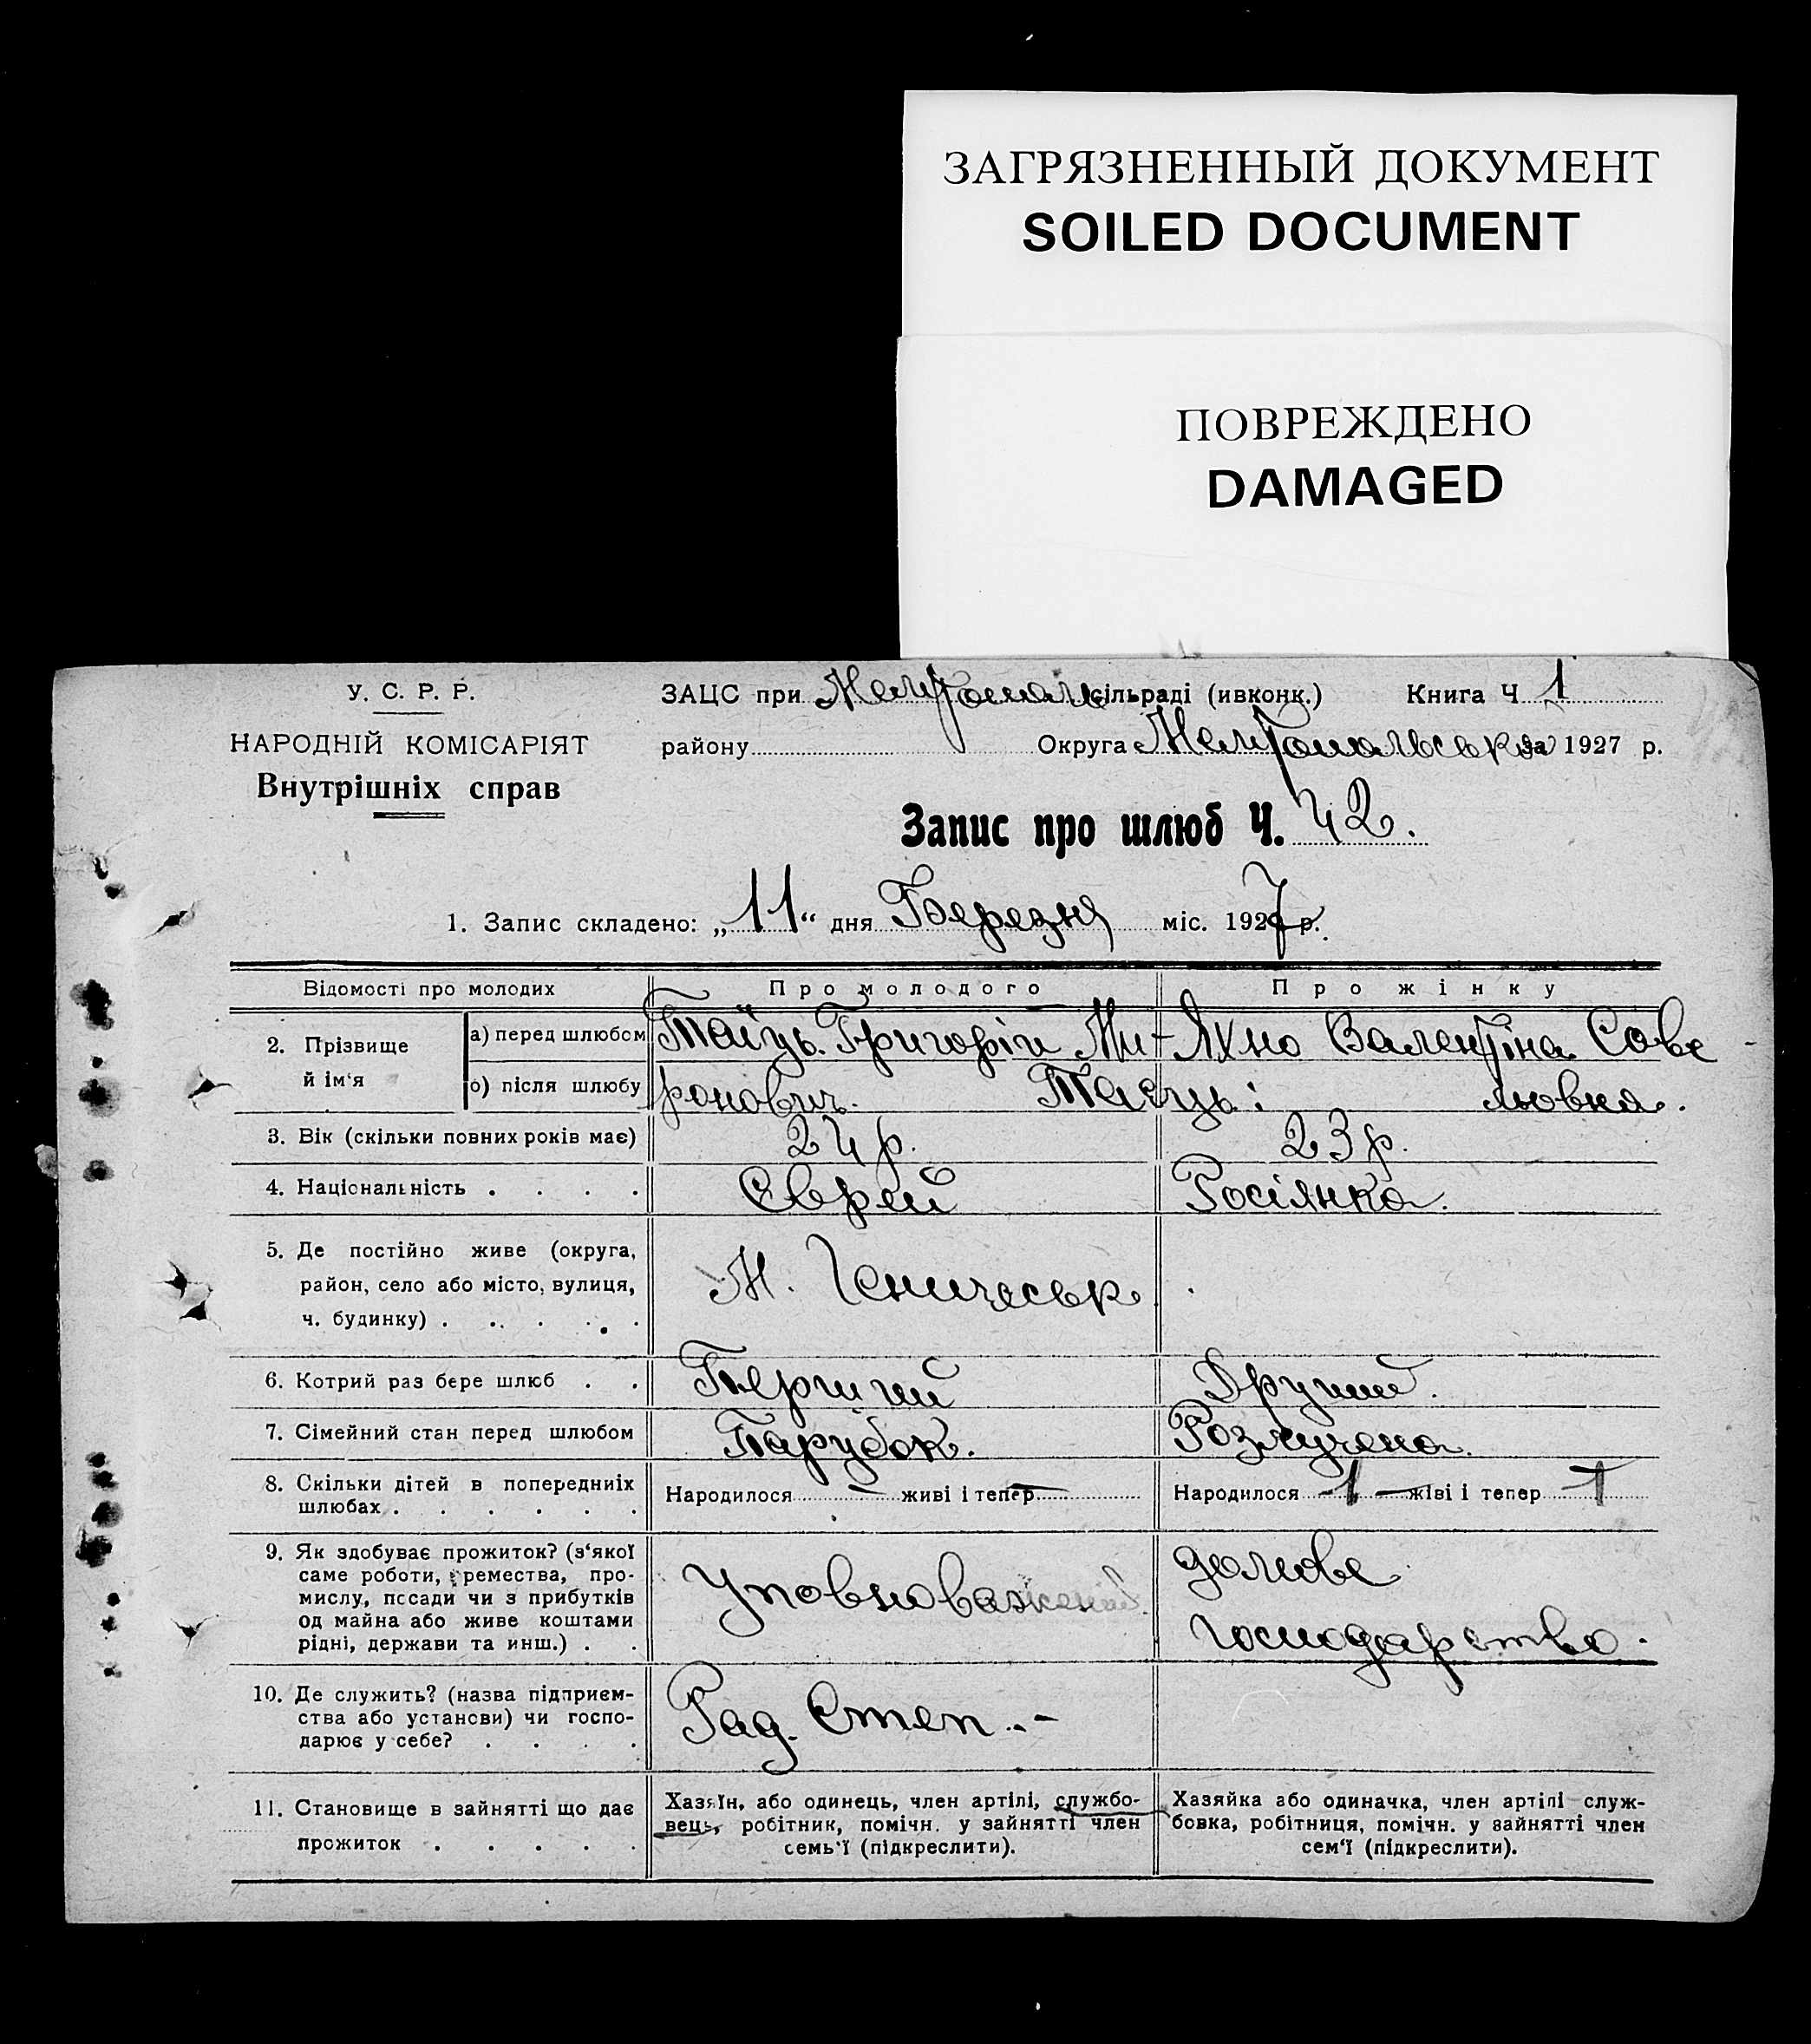 ЗАГРЯЗНЕННЫЙ ДОКУМЕНТ
SOILED DOCUMENT
ПОВРЕЖДЕНО
DAMAGED
У. С. Р. Р.
НАРОДНІЙ КОМІСАРІЯТ
Внутрішніх справ
ЗАЦС при Мелітополь сільраді (ивконк.) Книга Ч 1
району Округа Мелітопольська за 1927 р.
Запис про шлюб Ч. 42.
1. Запис складено: „11“ дня Березня міс. 1927 р.
Відомості про молодих
Про молодого
Про жінку
2. Прізвище й ім‘я
а) перед шлюбом
Таїць Григорій Ми-
Яхно Валентіна Саве
б) після шлюбу
ронович. Таєць:
льовна.
3. Вік (скільки повних років має)
24 р.
23 р.
4. Національність
Єврей
Росіянка.
5. Де постійно живе (округа,
район, село або місто, вулиця,
ч. будинку)
М. Геничеськ
6. Котрий раз бере шлюб
Перший
Другий.
7. Сімейний стан перед шлюбом
Парубок.
Розлучена.
8. Скільки дітей в попередниіх
шлюбах
Народилося — живі і тепер —
Народилося 1 — живі і тепер 1
9. Як здобуває прожиток? (з‘якої
саме роботи, ремества, про-
мислу, посади чи з прибутків
од майна або живе коштами
рідні, держави та инш.)
Уповноважений.
домове
господарство.
10. Де служить? (назва підприєм-
ства або установи) чи госпо-
дарює у себе?
Рад. Степ..-
11. Становище в зайнятті що дає
прожиток
Хазяїн, або одинець, член артілі, службо-
вець, робітник, помічн. у зайнятті член
семь‘ї (підкреслити).
Хазяйка або одиначка, член артілі служ-
бовка, робітниця, помічн. у зайнятті член
сем‘ї (підкреслити).